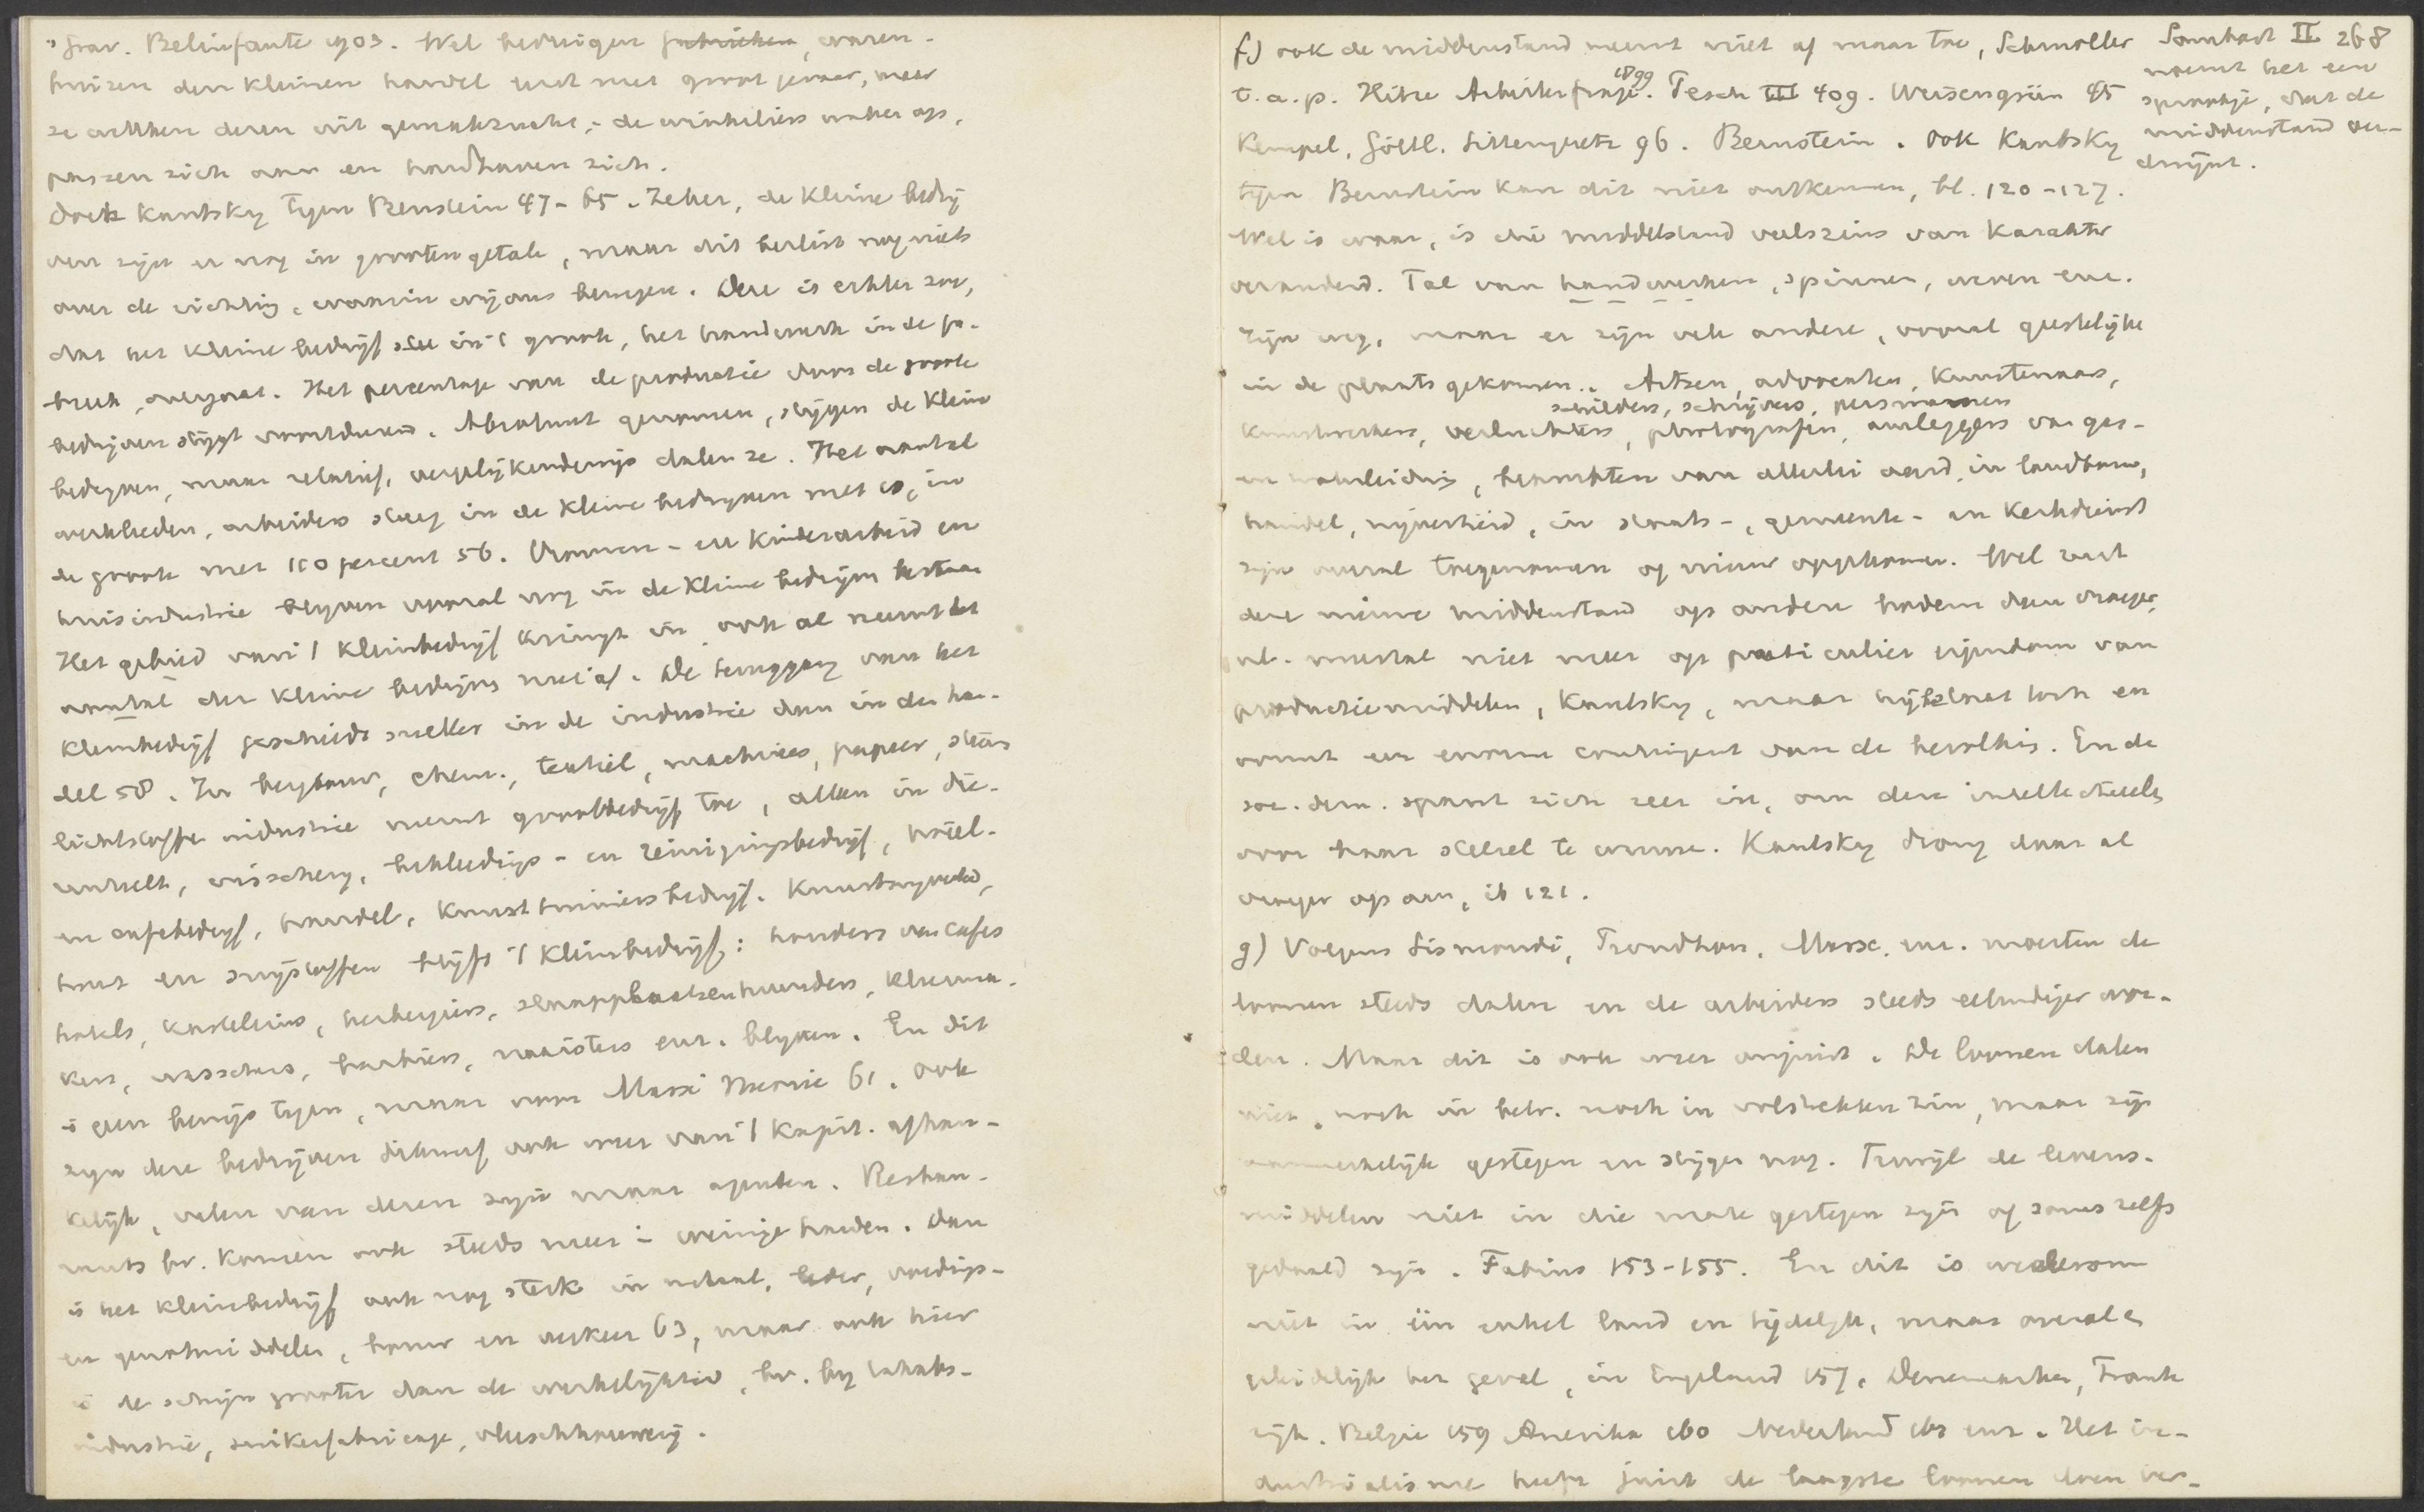 's Grav. Belinfante 1903. Wel bedreigen fabrieken, waren-
huizen den kleinen handel, niet met groot gevaar, meer
ze wekken deren uit gemakzucht; de winkeliers waken op,
passen zich aan en handhaven zich.
Doch Kautsky tegen Bernstein 47-65. Zeker, de kleine bedrij
ven zijn er nog in grooten getale, maar dit beslist nog niets
over de richting, waarin wij ons bewegen. Deze is echter zoo,
dat het kleine bedrijf steeds in 't groote, het handwerk in de fa-
briek, overgaat. Het percentage van de productie door de groote
bedrijven stijgt voortdurend. Absoluut genomen, stijgen de kleine
bedrijven, maar relatief, vergelijkenderwijs dalen ze. Het aantal
werklieden, arbeiders steeg in de kleine bedrijven met 10, in
de groote met 110 percent 56. Vrouwen- en kinderarbeid en
huisindustrie blijven vooral nog in de kleine bedrijven bestaan
Het gebied van 't kleinbedrijf krimpt in, ook al neemt het
aantal der kleine bedrijven niet af. De teruggang van het
kleinbedrijf geschiedt sneller in de industrie dan in den han-
del 58. In bergbouw, chem., textiel, machines, papier, steen
lichtstoffen industrie neemt grootbedrijf toe, alleen in die-
renteelt, visscherij, bekleedings- en reinigingsbedrijf, hotel-
en cafébedrijf, handel, kunst tuiniersbedrijf. Kunstnijverheid,
hout en snijstoffen blijft 't kleinbedrijf: houders van cafés
hotels, kasteleins, herbergiers, slaapplaatsenhouders, kleerma-
kers, visschers, barbiers, naaisters enz. blijven. En dit
is geen bewijs tegen, maar voor Marx' theorie 61. Ook
zijn deze bedrijven dikwerf ook weer van 't kapit. afhan-
kelijk, velen van deren zijn maar agenten. Restau-
rants bv. komen ook steeds meer in weinige handen. Dan
is het kleinbedrijf ook nog sterk in metaal, leder, voedings-
en genotmiddelen, bouw en verkeer 63, maar ook hier
is de schijn grooter dan de werkelijkheid, bv. bij tabaks-
industrie, suikerfabricage, vleeschhouwerij.
f) ook de middenstand neemt niet af maar toe, Schmoller
t.a.p. Hitze Arbeiterfrage 1899. Pesch III 409. Weisengrün 95
Kempel, Göttl. Sittengesetz 96. Bernstein. Ook Kautsky
tegen Bernstein kan dit niet ontkennen, bl. 120-127.
Wel is waar, is die middelstand veelszins van karakter
veranderd. Tal van handwerken, spinnen, weven enz.
zijn weg, maar er zijn vele andere, vooral geestelijke
in de plaats gekomen. Artsen, advocaten, kunstenaars,
schilders, schrijvers, persmannen
kunstwerkers, verluchters, photografen, aanleggers van gas-
en waterleiding, beambten van allerlei aard, in landbouw,
handel, nijverheid, in staats-, gemeente- en kerkdienst
zijn overal toegenomen of nieuw opgekomen. Wel rust
deze nieuwe middenstand op andere bodem dan vroeger,
nl. meestal niet meer op particulier eigendom van
productiemiddelen, Kautsky, maar hij bestaat toch en
vormt een enorm contingent van de bevolking. En de
soc. dem. spant zich zeer in, om deze intellectueelen
voor haar stelsel te winnen. Kautsky drong daar al
vroeger op aan, ib 121.
g) Volgens Sismondi, Proudhon, Marx, enz. moesten de
loonen steeds dalen en de arbeiders steeds ellendiger wor-
den. Maar dit is ook weer onjuist. De loonen dalen
niet, noch in betr. noch in volstrekten zin, maar zijn
aanmerkelijk gestegen en stijgen nog. Terwijl de levens-
middelen niet in die mate gestegen zijn of soms zelfs
gedaald zijn. Fabius 153-155. En dit is wederom
niet in één enkel land en tijdelijk, maar overal en
geleidelijk het geval, in Engeland 157, Denemarken, Frank
rijk, Belgie 159 Amerika 160 Nederland 163 enz. Het in-
dustrialisme heeft juist de laagste loonen doen ver-
Sombart II 268
noemt het een
sprookje, dat de
middenstand ver-
dwijnt.